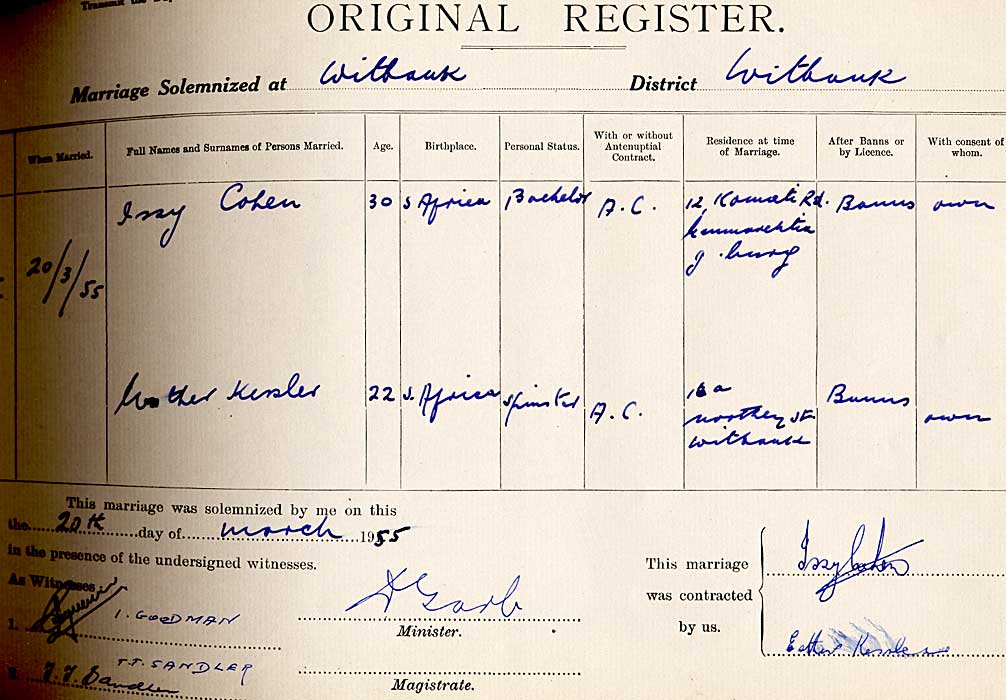 ORIGINAL REGISTER.
Marriage Solemnized at Witbank District Witbank
When Married. Full Names and Surnames of Persons Married. Age. Birthplace. Personal Status. With or without Antenuptial Contract. Residence at time of Marriage. After Banns or by Licence. With consent of whom.
20/3/55
Issy Cohen 30 S Africa Bachelor A.C. 12, Komati Rd. Banns own
J.burg
Kessler 22 S. Africa Spinster A.C. 16a Banns own
Northey St
Witbank
This marriage was solemnized by me on this
the 20th day of March 1955
in the presence of the undersigned witnesses.
As Witnesses:
1. I. GOODMAN
2. T.T. Sandler T.T. SANDLER
Garb
Minister.
Magistrate.
This marriage
was contracted
by us.
Issy Cohen
Esther Kessler